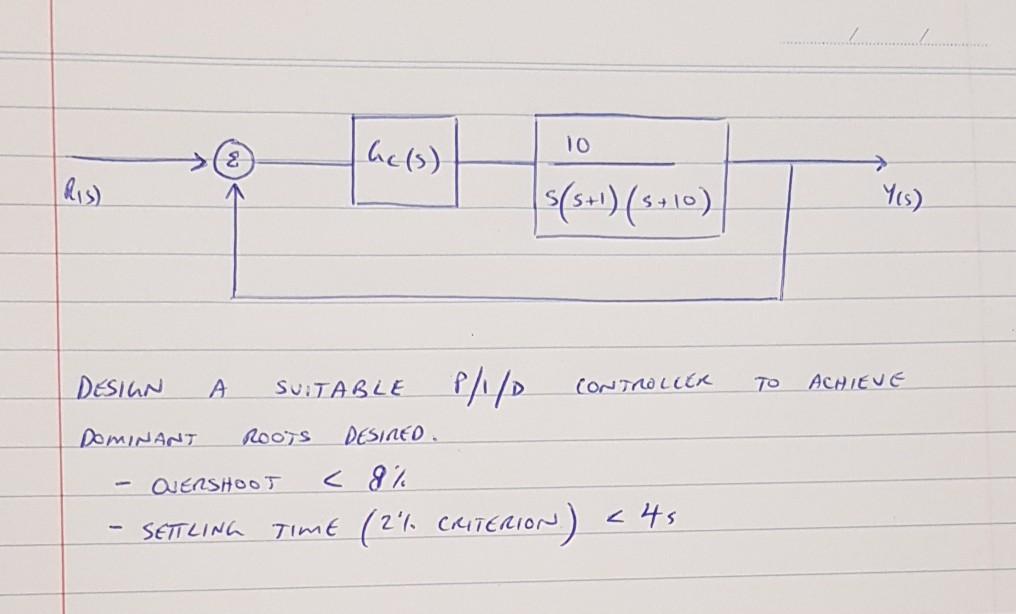 / /
10
Gc(s)
s(s+1)(s+10)
Σ
R(s)
Y(s)
DESIGN A SUITABLE P/I/D CONTROLLER TO ACHIEVE
DOMINANT ROOTS DESIRED.
- OVERSHOOT < 8%
- SETTLING TIME (2% CRITERION) < 4s